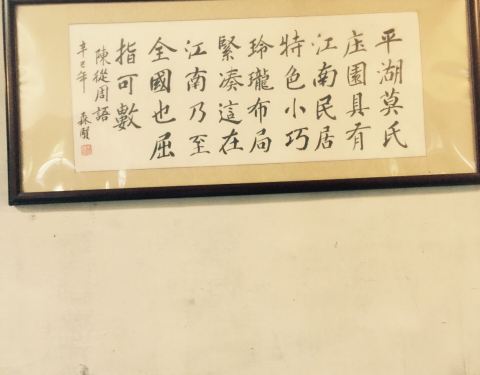 平湖莫氏
庄園具有
江南民居
特色小巧
玲瓏布局
緊凑這在
江南乃至
全國也屈
指可數
陳從周語
辛巳年